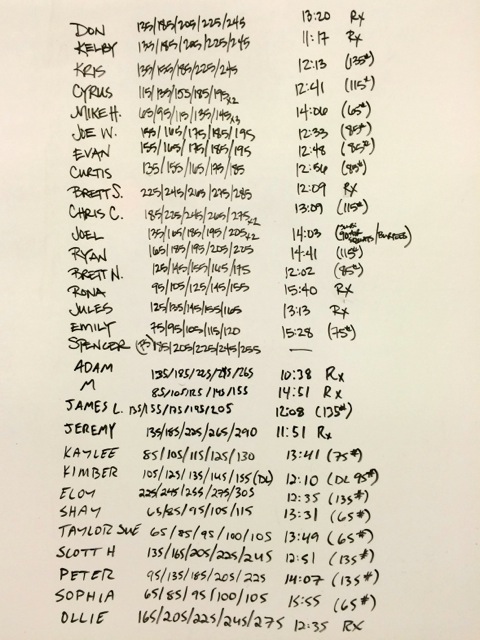 DON 135/185/205/225/245 13:20 Rx
KELBY 135/185/205/225/245 11:17 Rx
KRIS 135/155/185/225/245 12:13 (135#)
CYRUS 115/135/155/185/195x2 12:41 (115#)
MIKE H. 65/95/115/135/145x3 14:06 (65#)
JOE W. 155/165/175/185/195 12:33 (85#)
EVAN 155/165/175/185/195 12:48 (85#)
CURTIS 135/155/165/175/185 12:56 (85#)
BRETT S. 225/245/265/275/285 12:09 Rx
CHRIS C. 185/225/245/265/275x2 13:09 (115#)
JOEL 135/165/185/195/205x2 14:03 SQUATS/BURPEES)
RYAN 165/185/195/205/225 14:41 (115#)
BRETT N. 125/145/155/165/175 12:02 (85#)
RONA 95/105/125/145/155 15:40 Rx
JULES 125/135/145/155/165 13:13 Rx
EMILY 75/95/105/115/120 15:28 (75#)
SPENCER 185/205/225/245/255 —
ADAM 135/185/225/245/265 10:38 Rx
M 85/105/125/145/155 14:51 Rx
JAMES L. 135/155/175/195/205 12:08 (135#)
JEREMY 135/185/225/265/290 11:51 Rx
KAYLEE 85/105/115/125/130 13:41 (75#)
KIMBER 105/125/135/145/155 (DL) 12:10 (DL 95#)
ELOY 225/245/255/275/305 12:35 (135#)
SHAY 65/85/95/105/115 13:31 (65#)
TAYLOR SUE 65/85/95/100/105 13:49 (65#)
SCOTT H 135/165/205/225/245 12:51 (135#)
PETER 95/135/185/205/225 14:07 (135#)
SOPHIA 65/85/95/100/105 15:55 (65#)
OLLIE 165/205/225/245/275 12:35 Rx